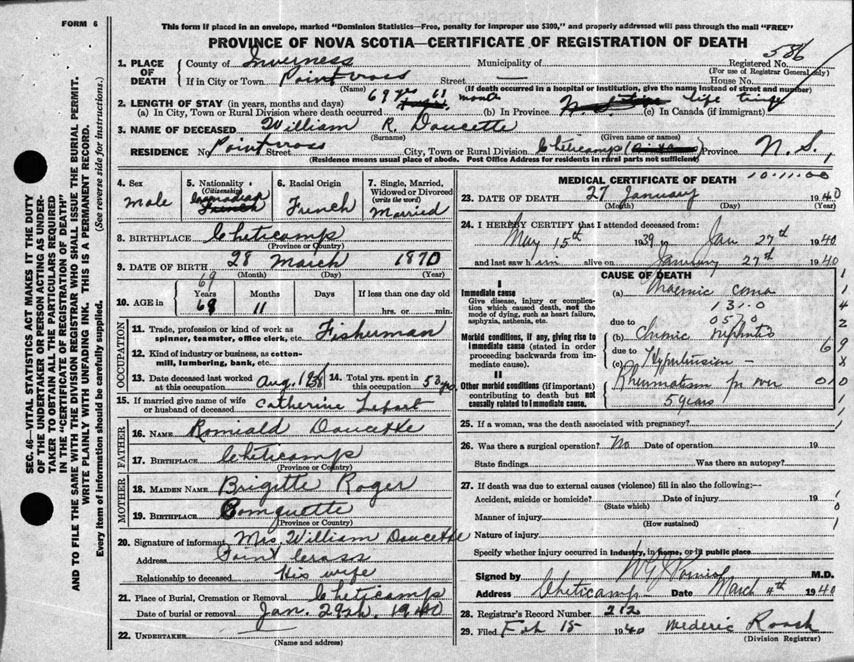 FORM 6
This form if placed in an envelope, marked "Dominion Statistics—Free, penalty for improper use $300," and properly addressed will pass through the mail "FREE"
PROVINCE OF NOVA SCOTIA—CERTIFICATE OF REGISTRATION OF DEATH
586
1. PLACE OF DEATH
County of Inverness Municipality of Registered No.
(For use of Registrar General only)
If in City or Town Point cross Street House No.
(Name) (If death occurred in a hospital or institution, give the name instead of street and number)
2. LENGTH OF STAY (in years, months and days) 69 yrs month
(a) In City, Town or Rural Division where death occurred (b) In Province life time (c) In Canada (if immigrant)
3. NAME OF DECEASED William R. Doucette
(Surname) (Given name or names)
RESIDENCE No. Point cross Street City, Town or Rural Division Cheticamp Province N. S.
(Residence means usual place of abode. Post Office Address for residents in rural parts not sufficient)
4. Sex
male
5. Nationality
(Citizenship)
6. Racial Origin
French
7. Single, Married, Widowed or Divorced
(write the word)
Married
8. BIRTHPLACE Cheticamp
(Province or Country)
9. DATE OF BIRTH 28 March 1870
(Month) (Day) (Year)
69
10. AGE in Years Months Days If less than one day old
11 hrs. or min.
OCCUPATION
11. Trade, profession or kind of work as Fisherman
spinner, teamster, office clerk, etc.
12. Kind of industry or business, as cotton-mill, lumbering, bank, etc.
13. Date deceased last worked at this occupation Aug. 14. Total yrs. spent in this occupation 53 yrs.
15. If married give name of wife or husband of deceased Catherine Lefort
FATHER
16. NAME Romuald Doucette
17. BIRTHPLACE Cheticamp
(Province or Country)
MOTHER
18. MAIDEN NAME Brigitte Roger
19. BIRTHPLACE Pomquette
(Province or Country)
20. Signature of informant Mrs. William Doucette
Address Point Cross
Relationship to deceased His wife
21. Place of Burial, Cremation or Removal Cheticamp
Date of burial or removal Jan. 29th, 1940
22. UNDERTAKER
(Name and address)
MEDICAL CERTIFICATE OF DEATH
10-11-00
23. DATE OF DEATH 27 January 1940
(Month) (Day) (Year)
24. I HEREBY CERTIFY that I attended deceased from:
May 15th 1939 Jan 27th 1940
and last saw him alive on January 27th 1940
CAUSE OF DEATH
I
Immediate cause
Give disease, injury or complication which caused death, not the mode of dying, such as heart failure, asphyxia, asthenia, etc.
(a) Uraemic coma
131.0
due to 057.0
Morbid conditions, if any, giving rise to immediate cause (stated in order proceeding backwards from immediate cause).
(b) Chronic nephritis
due to
(c) Hypertension —
II
Other morbid conditions (if important) contributing to death but not causally related to immediate cause.
Rheumatism for over
5 years
25. If a woman, was the death associated with pregnancy?
26. Was there a surgical operation? No Date of operation 19
State findings Was there an autopsy?
27. If death was due to external causes (violence) fill in also the following:—
Accident, suicide or homicide? Date of injury 19
(State which)
Manner of injury
(How sustained)
Nature of injury
Specify whether injury occurred in industry, in home, or in public place
Signed by M.D.
Address Cheticamp Date March 4th 1940
28. Registrar's Record Number 212
29. Filed Feb 15 1940 Mederic Roach
(Division Registrar)
SEC. 46—VITAL STATISTICS ACT MAKES IT THE DUTY OF THE UNDERTAKER OR PERSON ACTING AS UNDERTAKER TO OBTAIN ALL THE PARTICULARS REQUIRED IN THE "CERTIFICATE OF REGISTRATION OF DEATH"
AND TO FILE THE SAME WITH THE DIVISION REGISTRAR WHO SHALL ISSUE THE BURIAL PERMIT.
WRITE PLAINLY WITH UNFADING INK. THIS IS A PERMANENT RECORD.
Every item of information should be carefully supplied. (See reverse side for instructions.)